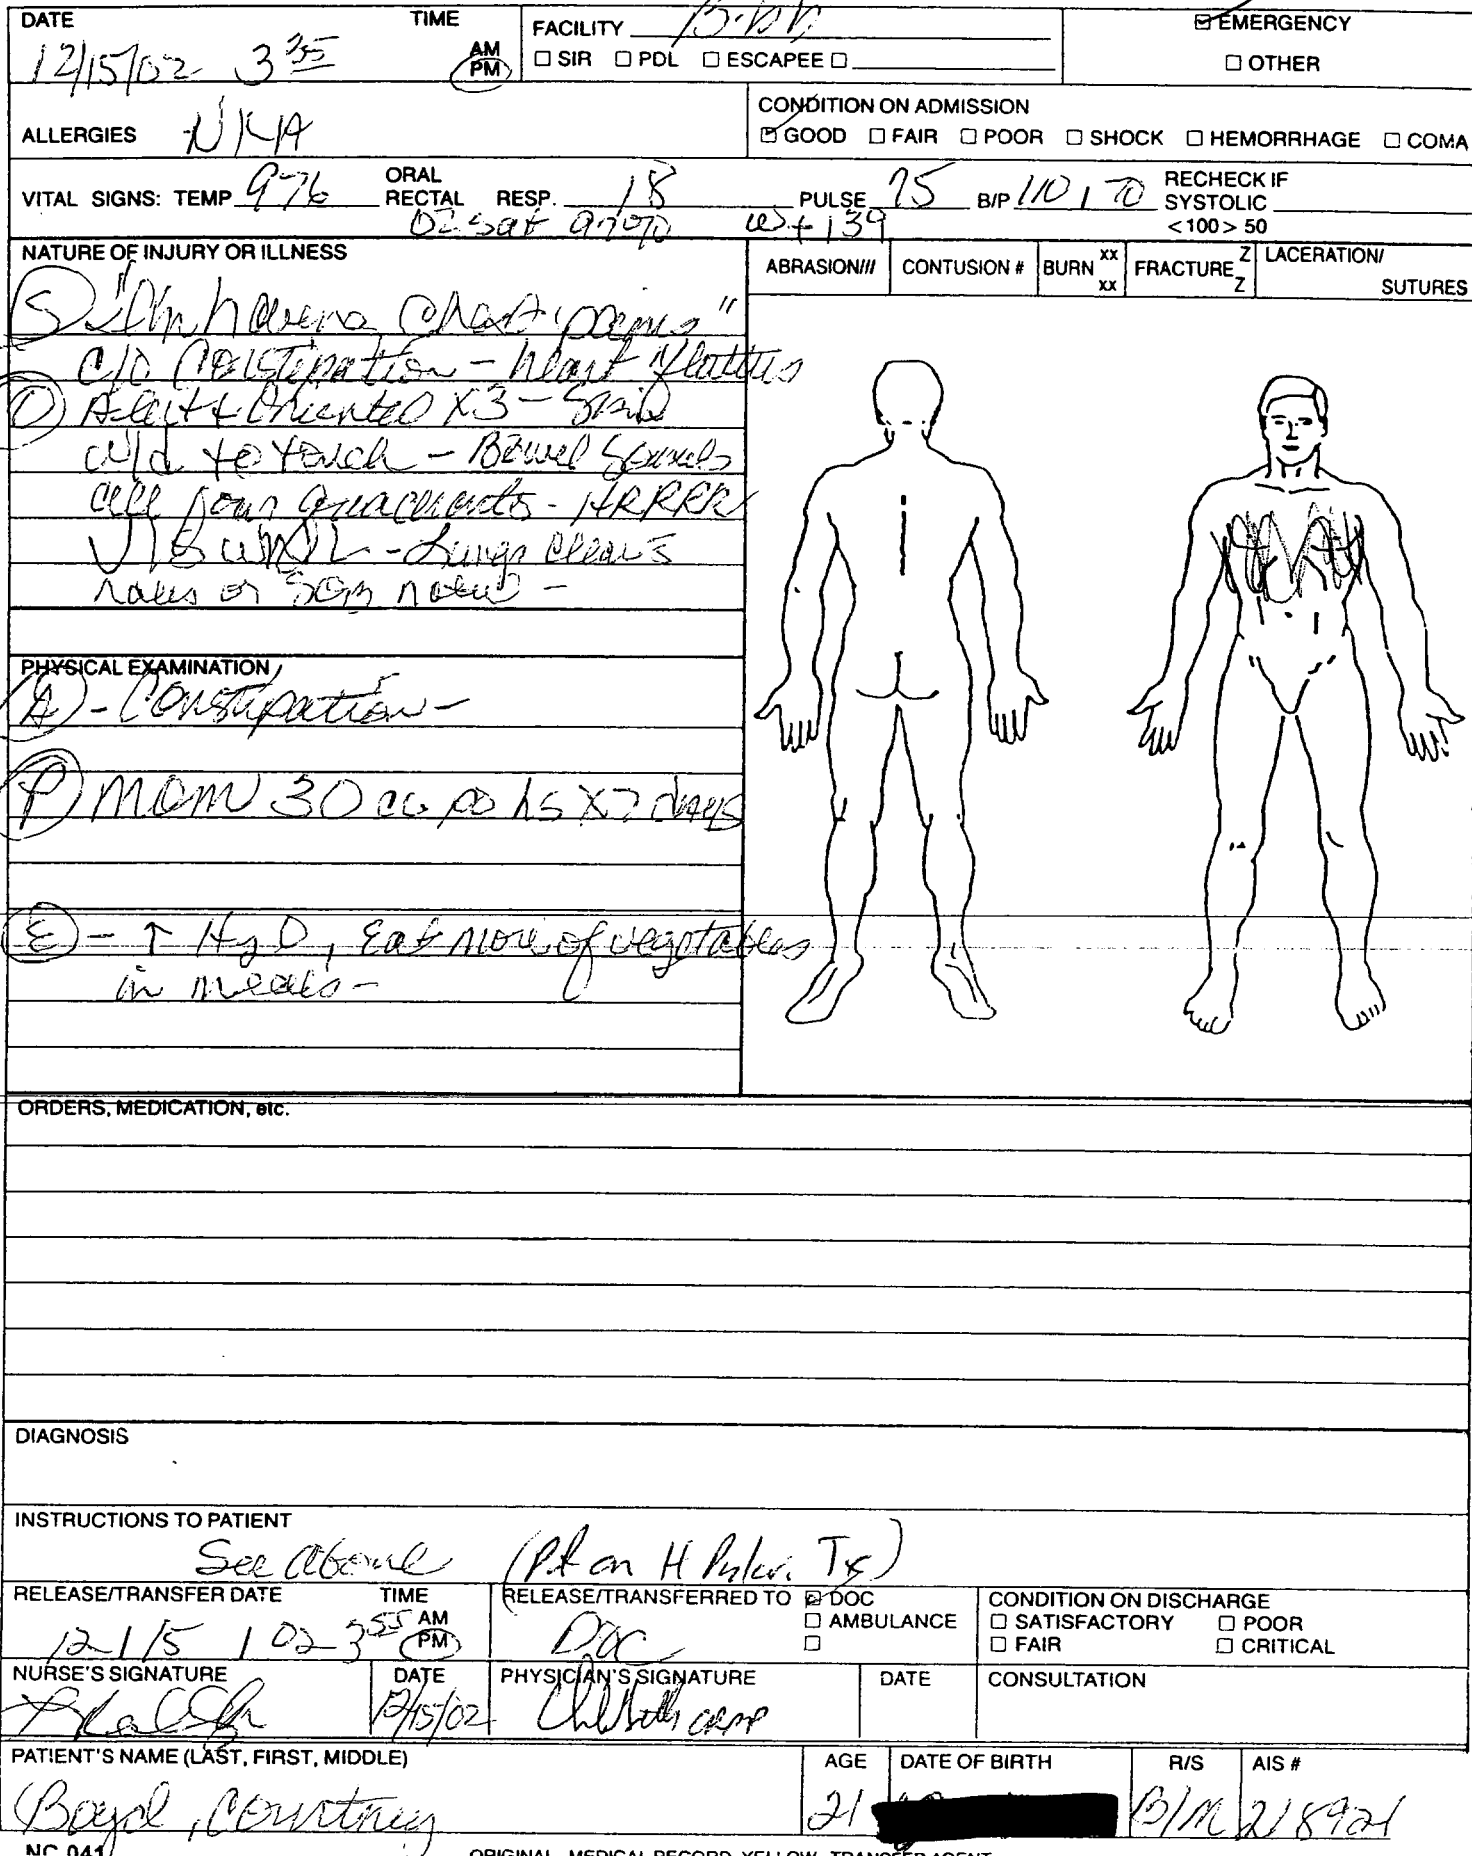 DATE TIME FACILITY Bibb ☑ EMERGENCY
12/15/02 3 35 AM PM ☐ SIR ☐ PDL ☐ ESCAPEE ☐ ☐ OTHER
ALLERGIES NKA CONDITION ON ADMISSION
☑ GOOD ☐ FAIR ☐ POOR ☐ SHOCK ☐ HEMORRHAGE ☐ COMA
VITAL SIGNS: TEMP 976 ORAL RECTAL RESP. 18 PULSE 75 B/P 110 / 70 RECHECK IF SYSTOLIC <100 > 50
O2 sat 97% wt 139
NATURE OF INJURY OR ILLNESS ABRASION/// CONTUSION # BURN xx xx FRACTURE Z Z LACERATION/ SUTURES
S "I'm having chest pains"
c/o Constipation - heart flutters
O Alert & Oriented X3 - Skin
w/d to touch - Bowel Sounds
all four quadrants - HRRRR
V/S WNL - Lungs clear s
rales or SOB noted -
PHYSICAL EXAMINATION
A - Constipation -
P MOM 30 cc po hs X7 days
E - ↑ H2O, Eat more of vegetables
in meals -
ORDERS, MEDICATION, etc.
DIAGNOSIS
INSTRUCTIONS TO PATIENT
See above (Pt on H Tx)
RELEASE/TRANSFER DATE TIME RELEASE/TRANSFERRED TO ☑ DOC CONDITION ON DISCHARGE
☐ AMBULANCE ☐ SATISFACTORY ☐ POOR
12/15/02 3 55 AM PM DOC ☐ ☐ FAIR ☐ CRITICAL
NURSE'S SIGNATURE DATE PHYSICIAN'S SIGNATURE DATE CONSULTATION
12/15/02 CRNP
PATIENT'S NAME (LAST, FIRST, MIDDLE) AGE DATE OF BIRTH R/S AIS #
Boyd, Courtney 21 B/M 218921
NC 041 ORIGINAL - MEDICAL RECORD, YELLOW - TRANSFER AGENT